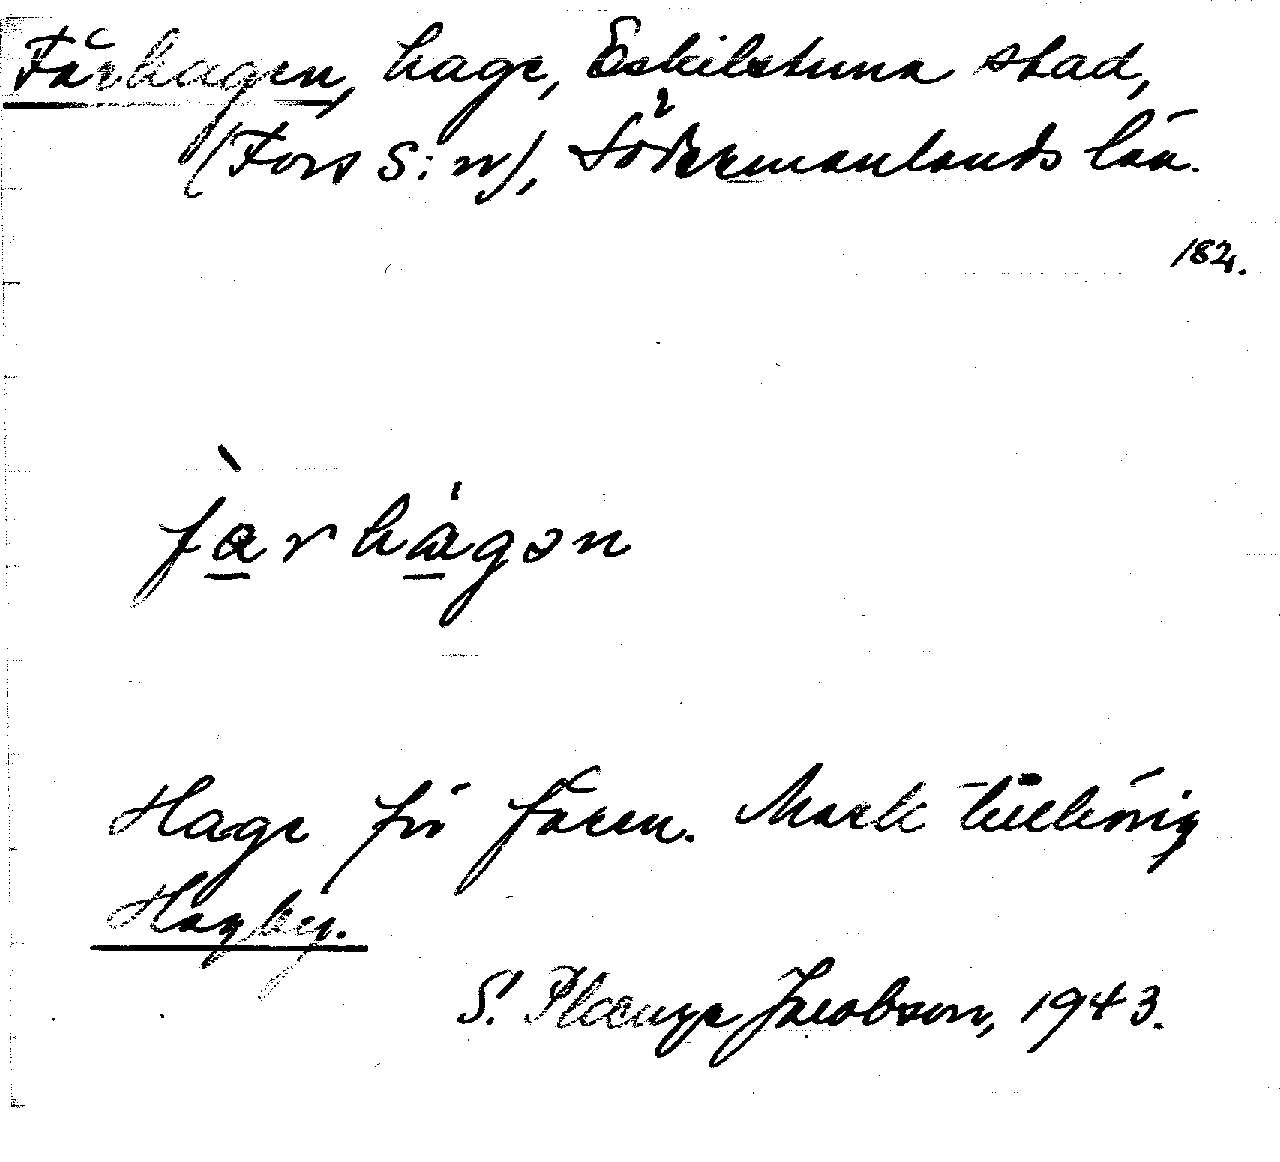 Fårhagen, hage, Eskilstuna stad,
(Fors S:n), Södermanlands län.
182.
fàrhagən
Hage för fåren. Mark tillhörig
Hagby.
S. Plænge Jacobson, 1943.